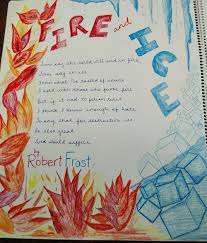 FIRE and
ICE
Some say the world will end in fire
Some say in ice
From what I've tasted of desire
I hold with those who favor fire
But if it had to perish twice
I think I know enough of hate
To say that for destruction ice
Is also great
And would suffice
by
Robert Frost